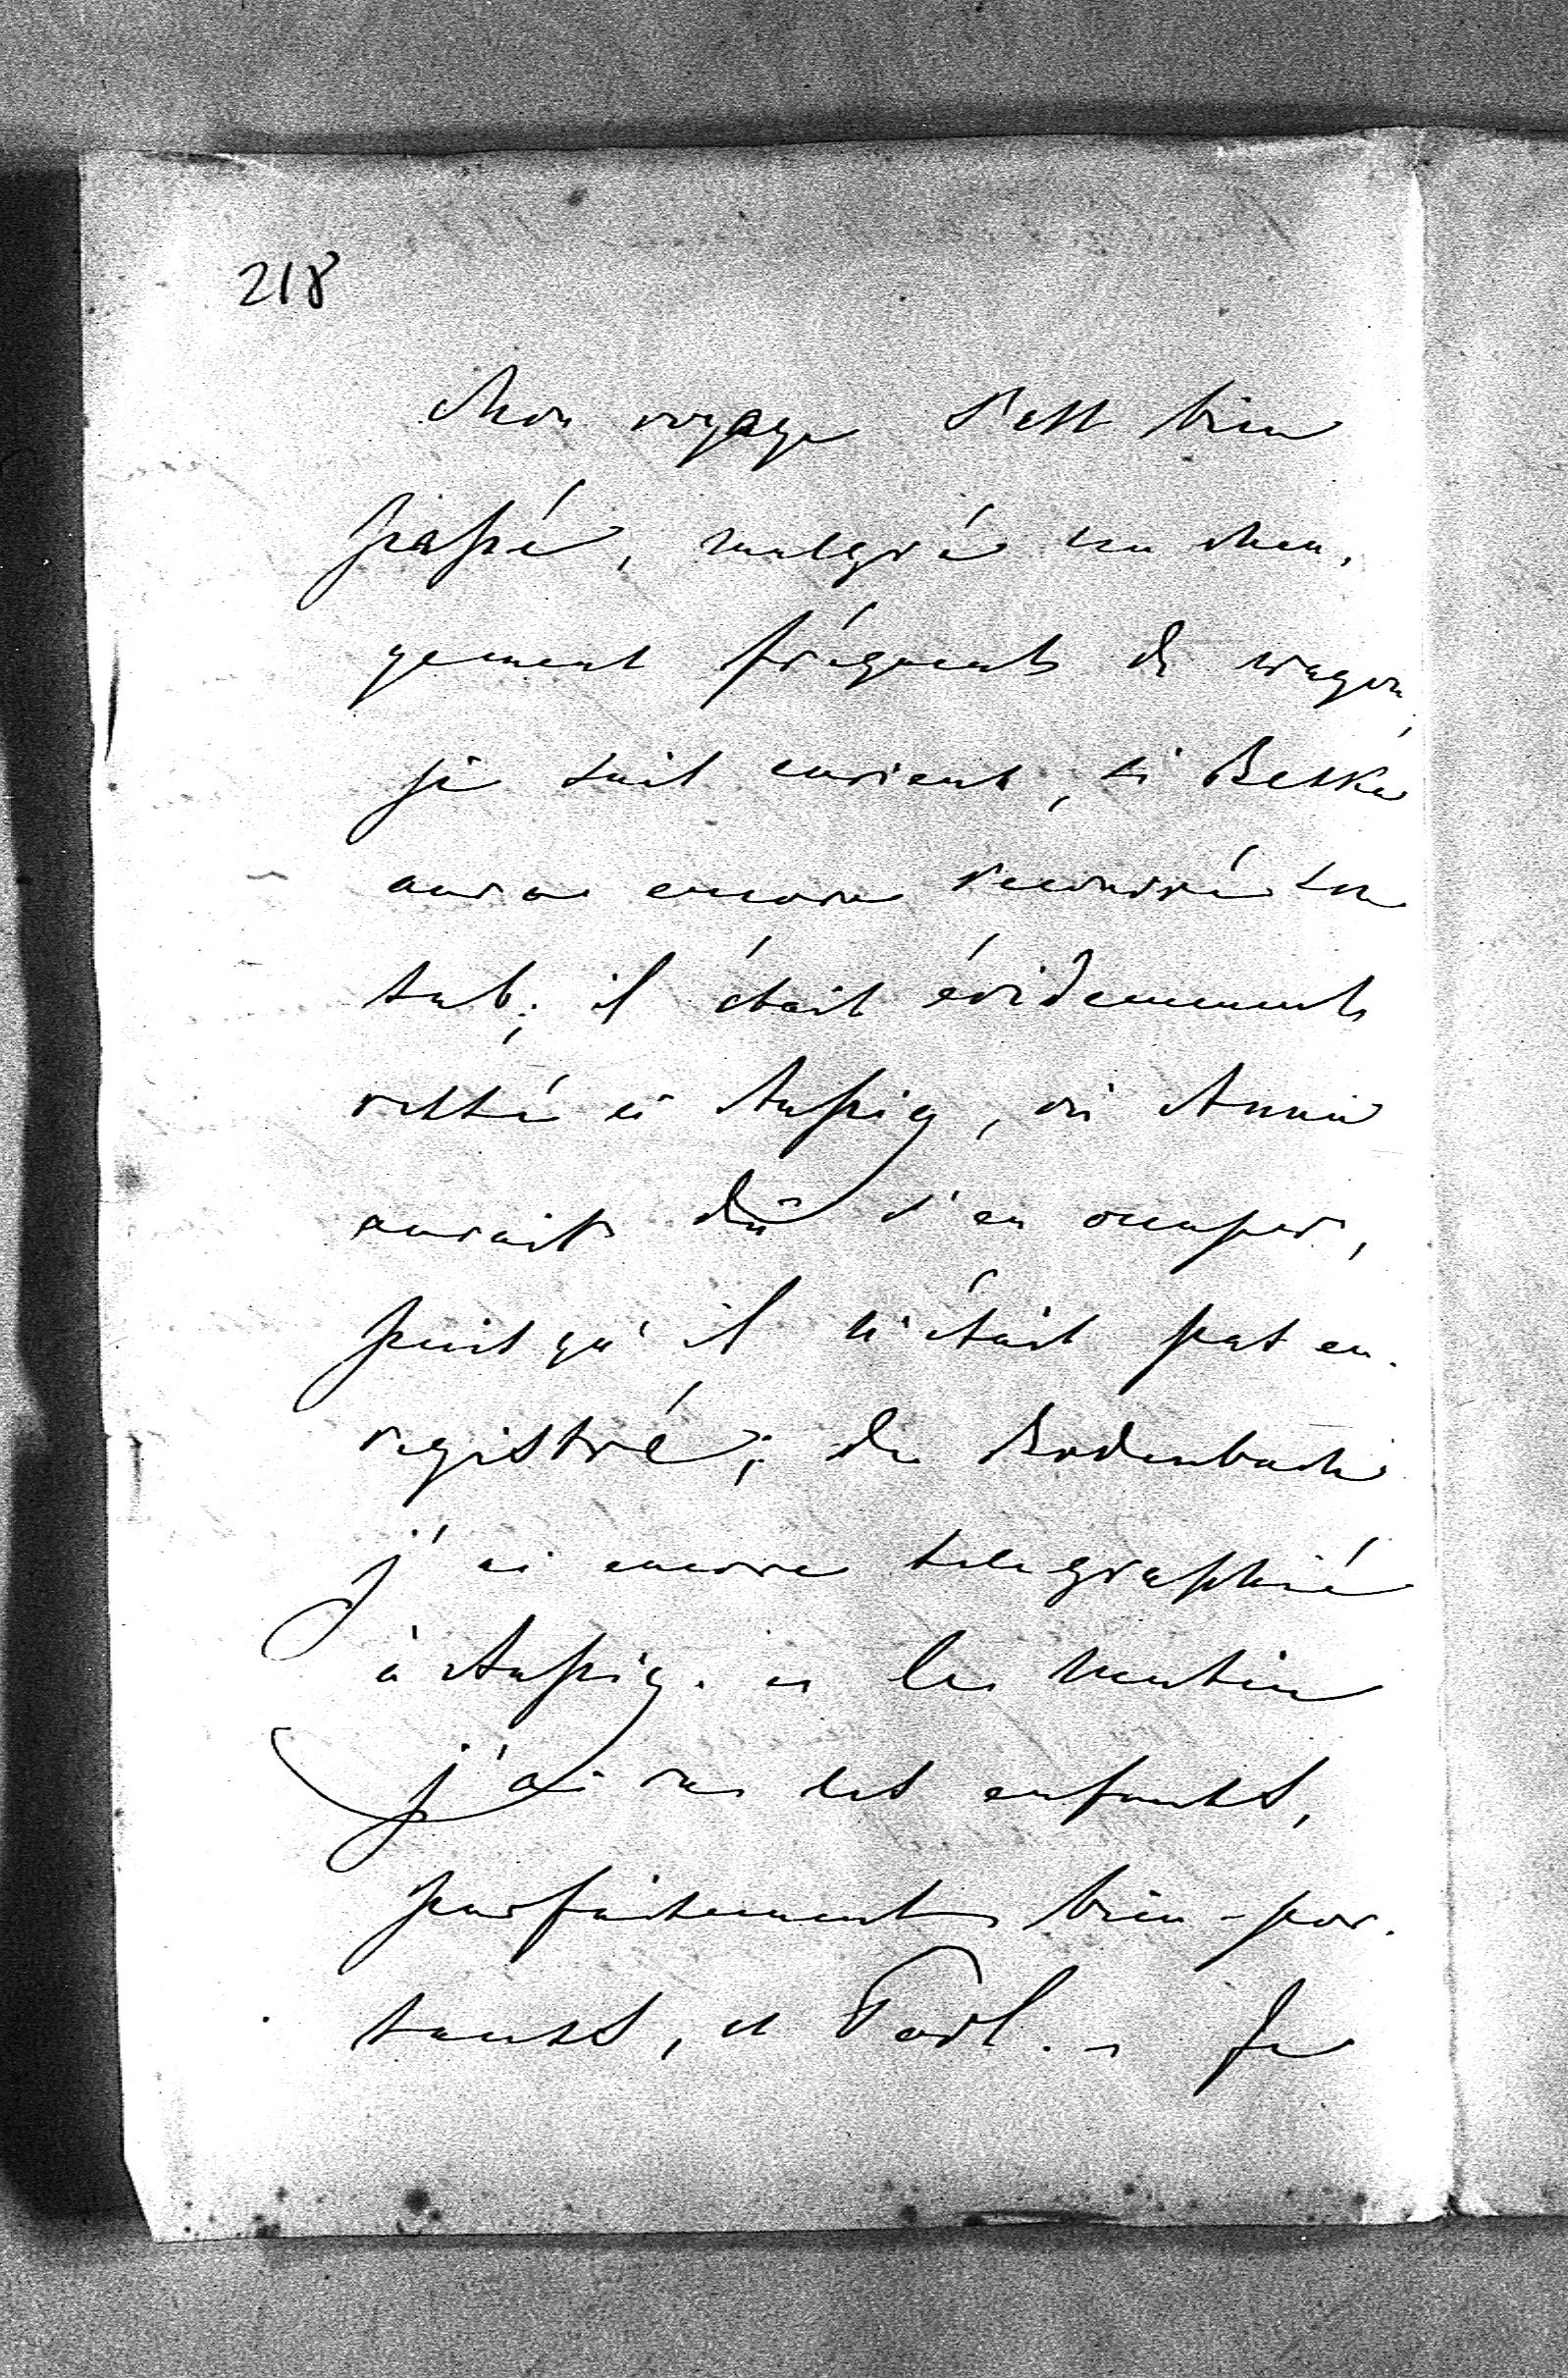 218
Mon voyage s'est bien
passé, malgré un chan-
gement fréquents de wagon,
je suis curieux, si Betka
aura encore recouvré son
sub; il était évidemment
resté à Aussig, où Annie
aurait dû s'en occuper,
puisqu'il n'était pas en-
registré; de Bodenbach
j'ai encore telegraphié
à Aussig. - Ce matin
j'ai vu les enfants,
parfaitement bien-por-
tants, et Paul. - Je